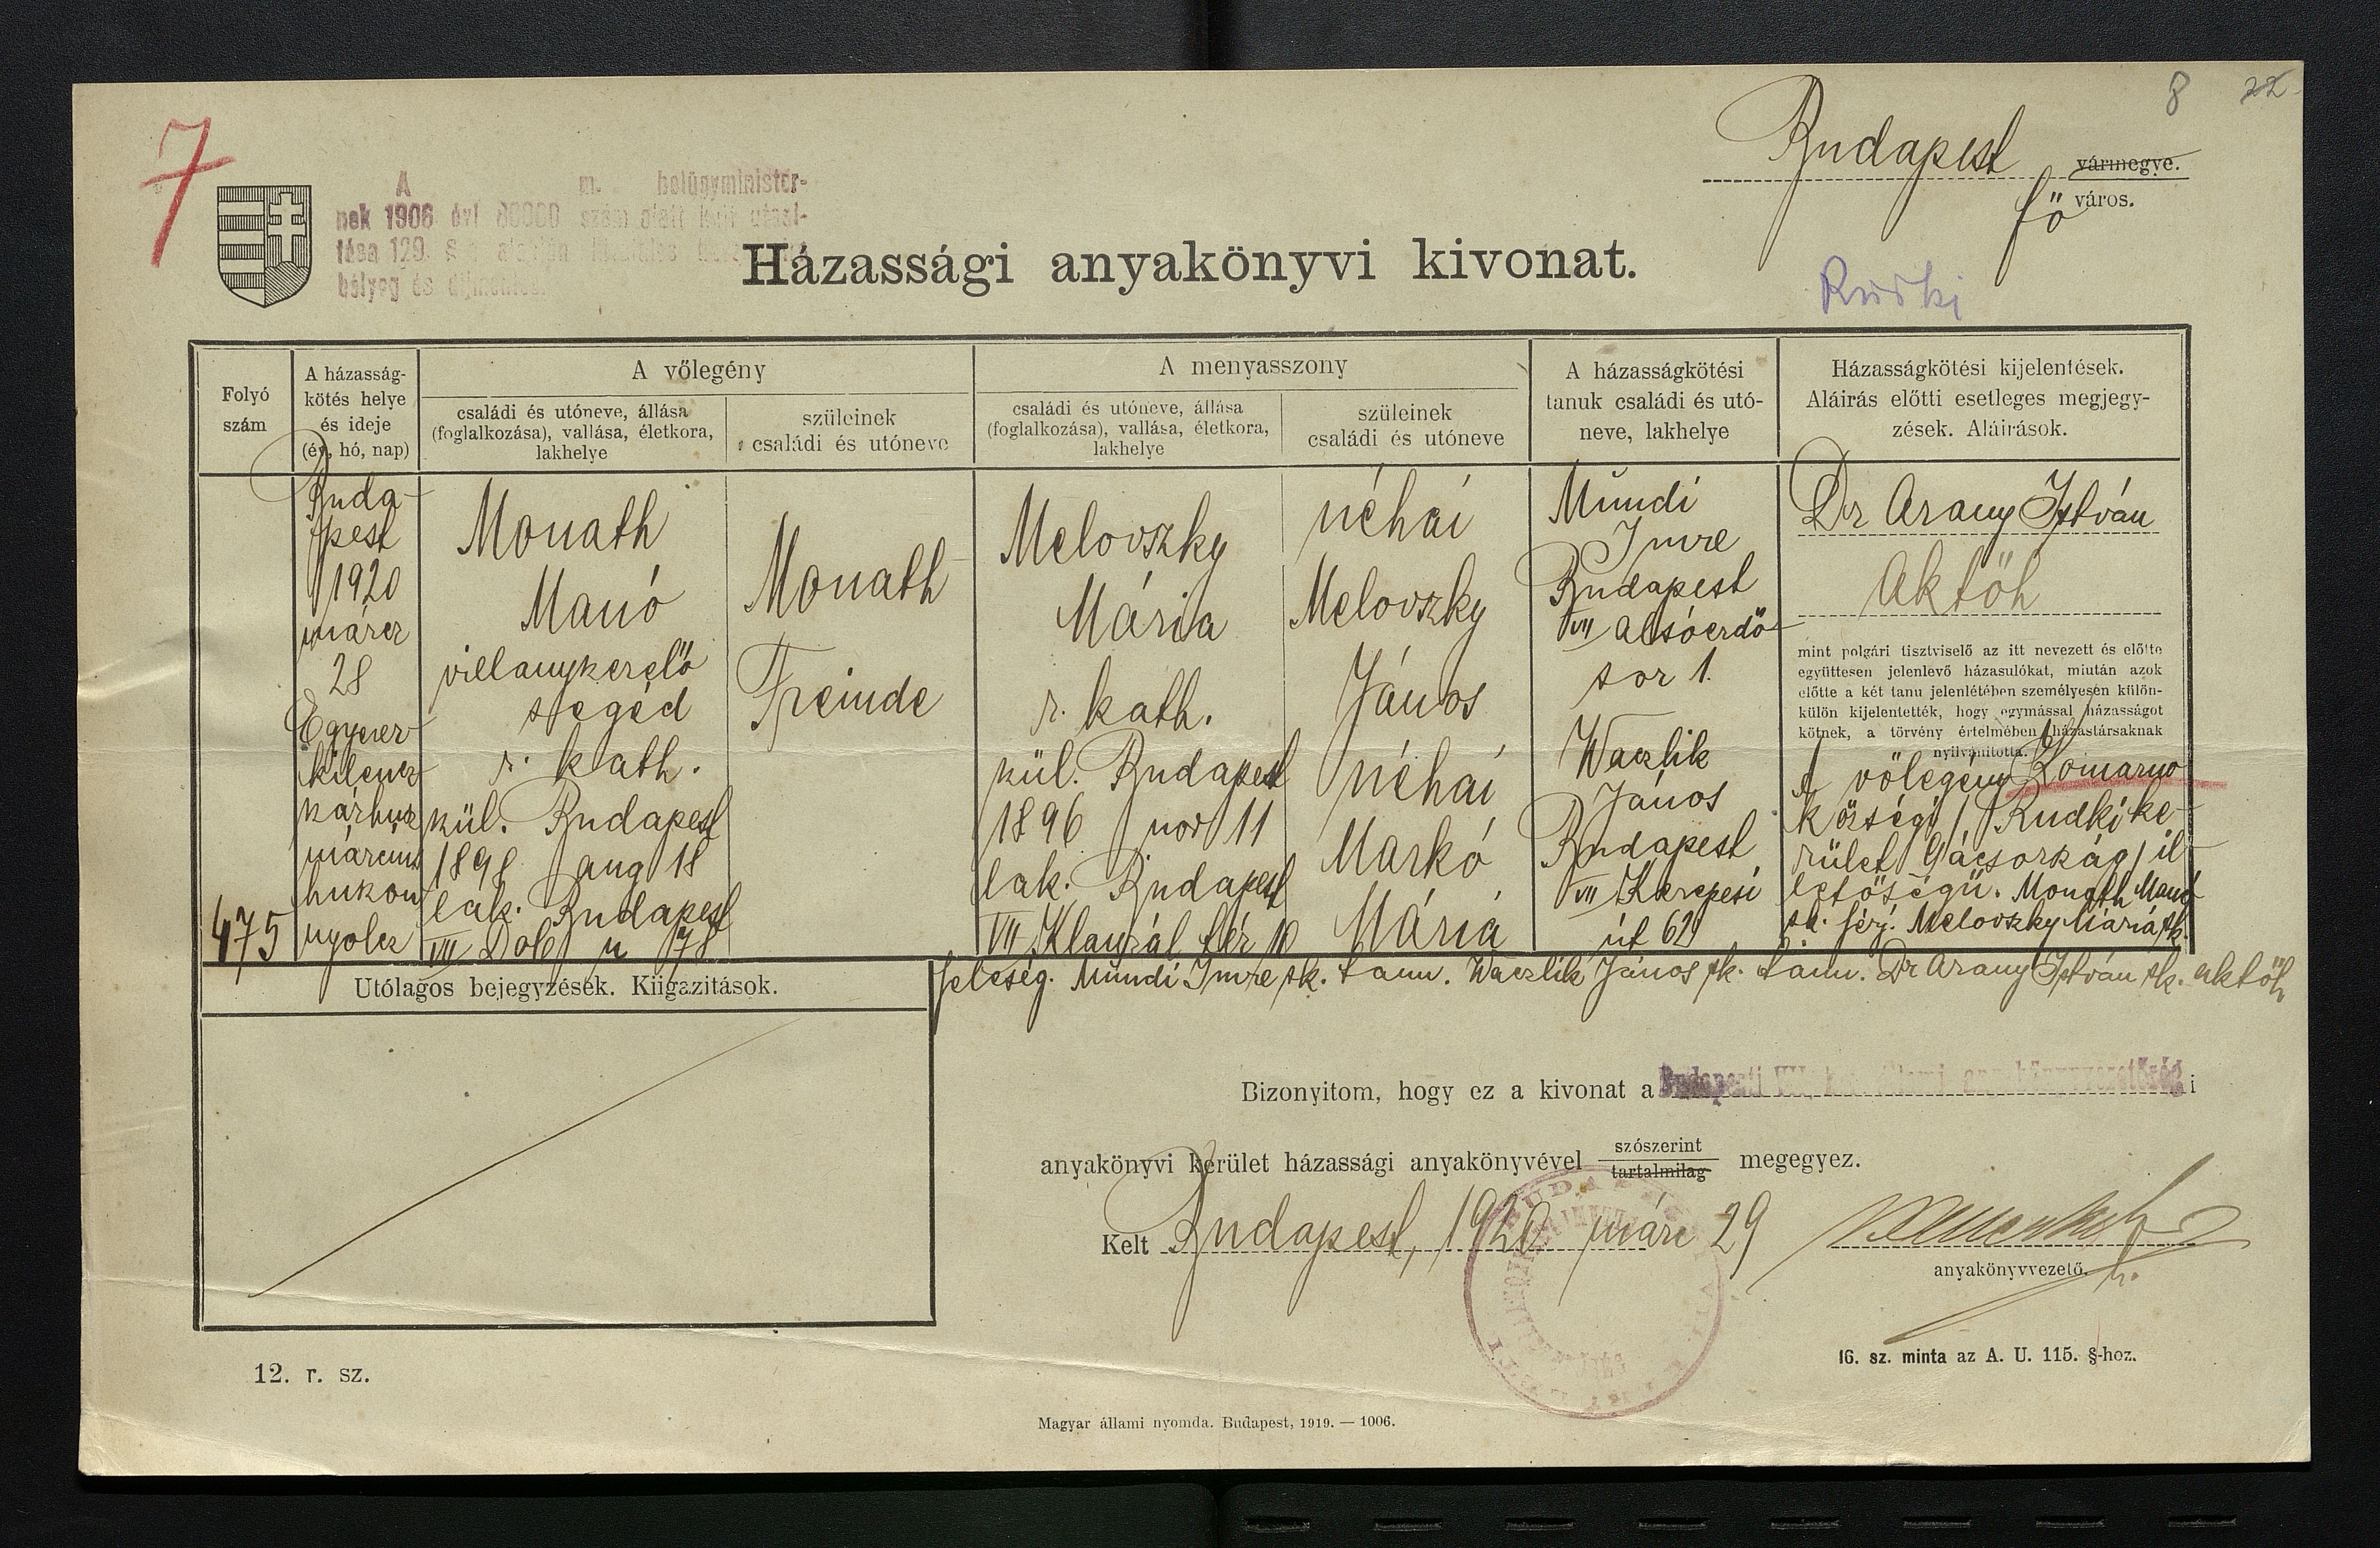 8 22
7
Budapest vármegye.
fő város.
A m. belügyminister-
nek 1906 évi 80000 szám alatt kelt utasi-
tása 129. § alapján
bélyeg és díjmentes.
Házassági anyakönyvi kivonat.
Rudki
Folyó
szám
A házasság-
kötés helye
és ideje
(év, hó, nap)
A vőlegény
családi és utóneve, állása
(foglalkozása), vallása, életkora,
lakhelye
szüleinek
családi és utóneve
A menyasszony
családi és utóneve, állása
(foglalkozása), vallása, életkora,
lakhelye
szüleinek
családi és utóneve
A házasságkötési
tanuk családi és utó-
neve, lakhelye
Házasságkötési kijelentések.
Aláirás előtti esetleges megjegy-
zések. Aláirások.
475
Buda-
pest
1920
márcz
28
Egyezer
kilencz
márczius
huszon
nyolcz
Monath
Manó
villanyszerelő
segéd
r. kath.
szül. Budapest
1898 aug 18
lak. Budapest
VII Dob u 78
Monath
Freinde
Melovszky
Mária
r. kath.
szül. Budapest
1896 nov 11
lak. Budapest
VII Klauzál tér 10
néhai
Melovszky
János
néhai
Markó
Mária
Mündi
Imre
Budapest
VII alsóerdő
sor 1.
Waczlik
János
Budapest
VII Kerepesi
út 62
Dr Arany István
aktőh
mint polgári tisztviselő az itt nevezett és előtte
együttesen jelenlevő házasulókat, miután azok
előtte a két tanu jelenlétében személyesen külön-
külön kijelentették, hogy egymással házasságot
kötnek, a törvény értelmében házastársaknak
nyilvánitotta.
A vőlegény Komarno
községi / Rudki ke-
rület Gácsország / il-
letőségű. Monath Manó
sk. férj. Melovszky Mária sk.
feleség. Mündi Imre sk. tanu. Waczlik János sk. tanu. Dr Arany István sk. aktőh
Utólagos bejegyzések. Kiigazitások.
Bizonyitom, hogy ez a kivonat a Budapesti VII. ker. állami anyakönyvvezetőség i
anyakönyvi kerület házassági anyakönyvével szószerint
tartalmilag megegyez.
Kelt Budapest, 1920 márc 29
anyakönyvvezető. h.
12. r. sz.
16. sz. minta az A. U. 115. §-hoz.
Magyar állami nyomda. Budapest, 1919. — 1006.